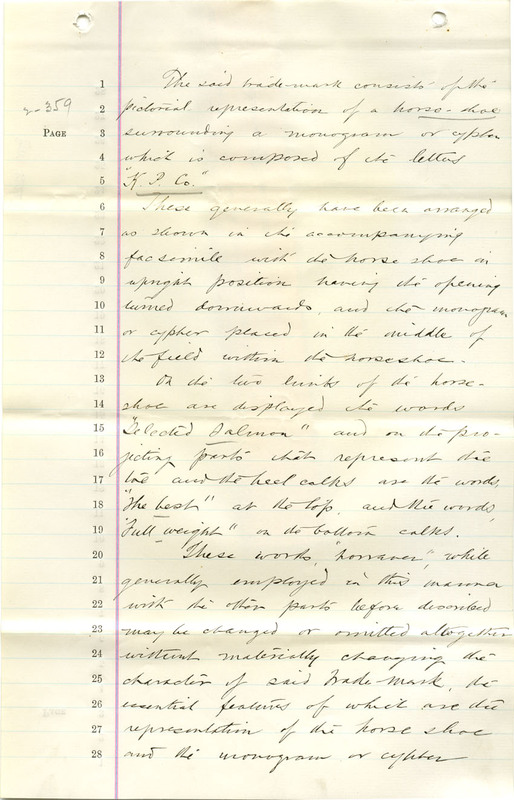 2-359
PAGE
1 The said trade-mark consists of the
2 pictorial representation of a horse-shoe
3 surrounding a monogram or cypher
4 which is composed of the letters
5 "K. P. Co."
6 These generally have been arranged
7 as shown in the accompanying
8 facsimile with the horse shoe in
9 upright position having the opening
10 turned downwards, and the monogram
11 or cypher placed in the middle of
12 the field within the horseshoe.
13 On the two limbs of the horse-
14 shoe are displayed the words
15 "Selected Salmon" and on the pro-
16 jecting parts that represent the
17 toe and the heel calks are the words
18 "The best" at the top, and the words
19 "Full weight" on the bottom calks.
20 These words, however, while
21 generally employed in this manner
22 with the other parts before described
23 may be changed or omitted altogether
24 without materially changing the
25 character of said Trade Mark, the
26 essential features of which are the
27 representation of the horse shoe
28 and the monogram or cypher